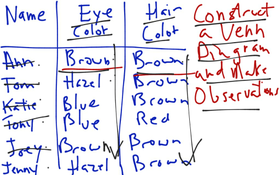 Name Eye Color Hair Color
Ann Brown Brown
Tom Hazel Brown
Katie Blue Brown
Tony Blue Red
Joey Brown Brown
Jenny Hazel Brown
Construct
a Venn
Diagram
and make
Observations